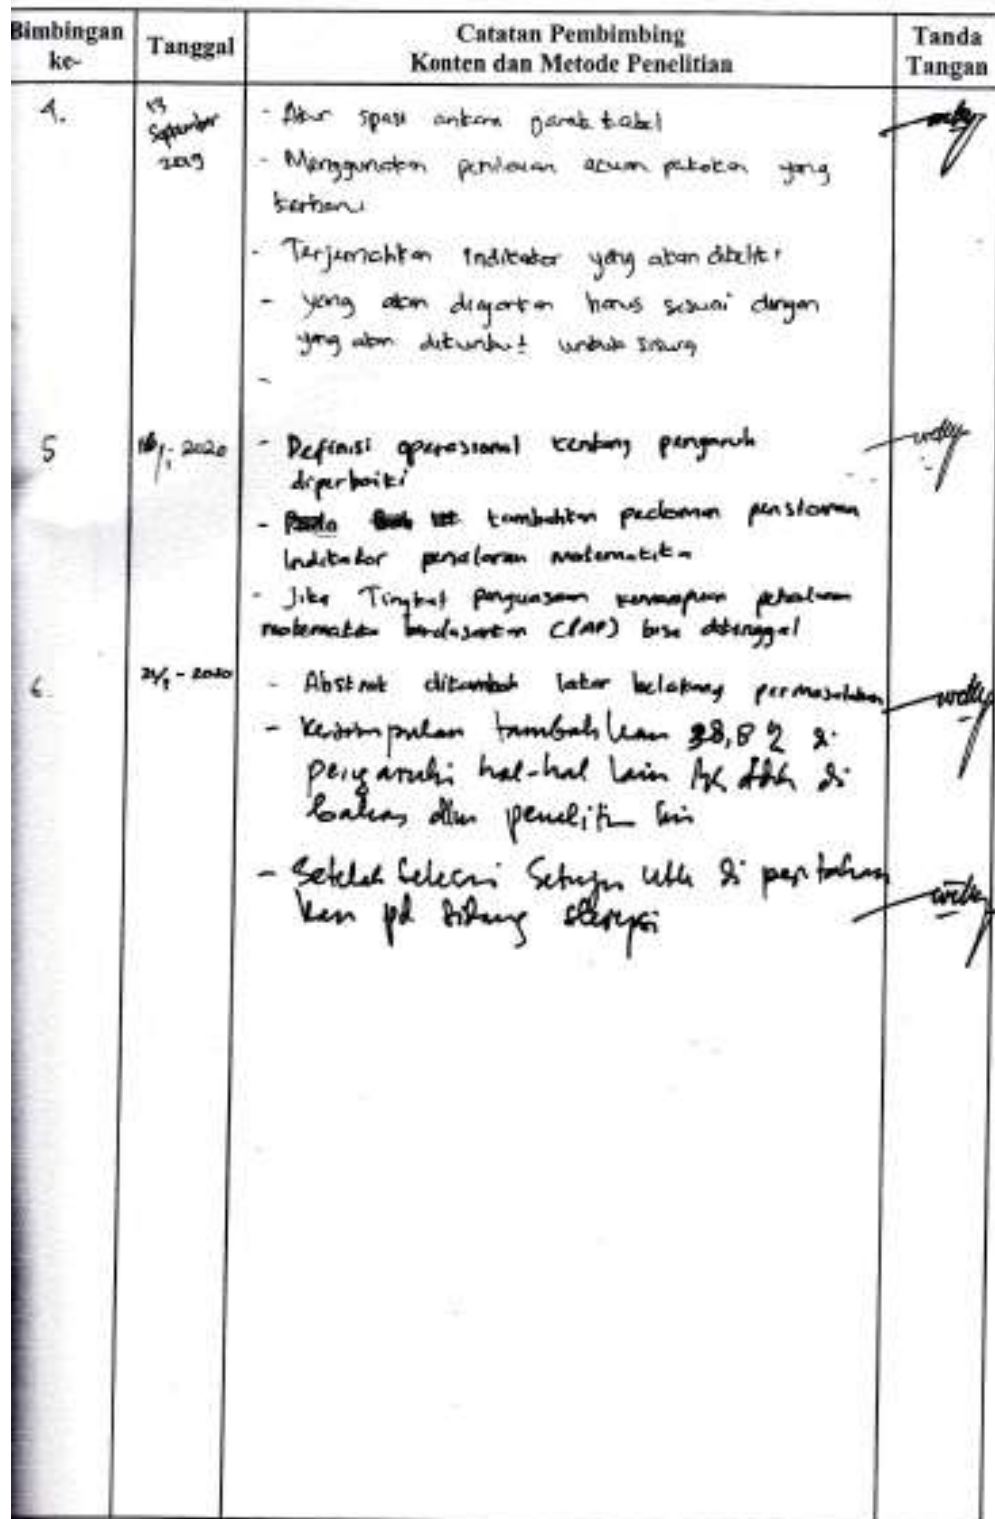 Bimbingan ke-
Tanggal
Catatan Pembimbing
Konten dan Metode Penelitian
Tanda Tangan
4.
13
September
2019
- Atur spasi antara jarak tabel
- Menggunakan penilaian acuan patokan yang
- Terjemahkan indikator yang akan diteliti
- yang akan diajarkan harus sesuai dengan
yang akan untuk siswa
-
5
/1-2020
- Definisi operasional tentang pengaruh
diperbaiki
- tambahkan pedoman penskoran
Indikator penalaran matematika
- Jika Tingkat penguasaan kemampuan penalaran
matematika berdasarkan (PAP) bisa ditinggal
6.
21/1 - 2020
- Abstrak ditambah latar belakang permasalahan
- Kesimpulan tambahkan 38,8 % di
pengaruhi hal-hal lain di
bahas dlm penelitian ini
- Setelah Selesai Setuju utk di pertahan
kan pd sidang skripsi